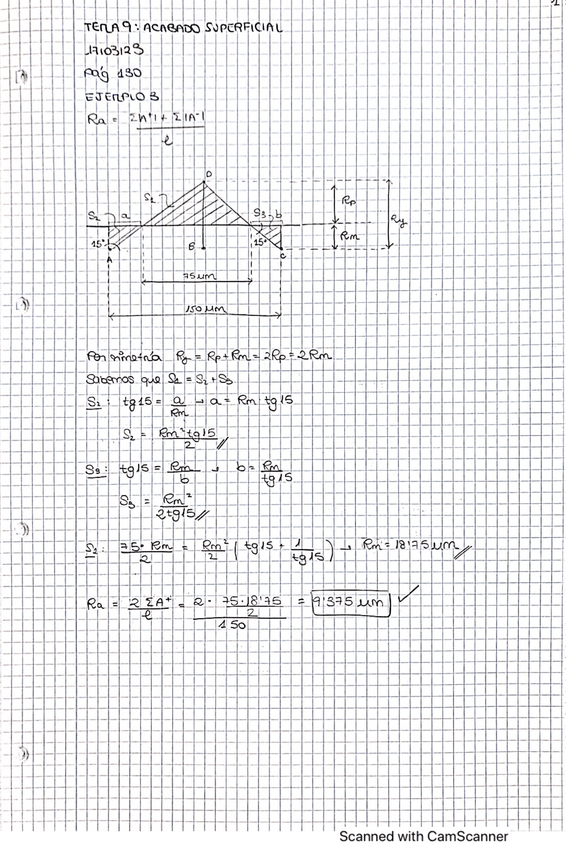 1
TEMA 9: ACABADO SUPERFICIAL
17/03/23
Pág 130
EJEMPLO 3
Ra = ΣA⁺ + Σ|A⁻| / ℓ
D
S1
S2 a S3 b
Rp
Ry
Rm
15° B 15°
A C
75 μm
150 μm
Por simetría Ry = Rp + Rm = 2Rp = 2Rm
Sabemos que S1 = S2 + S3
S2: tg15 = a / Rm → a = Rm tg15
S2 = Rm² tg15 / 2
S3: tg15 = Rm / b → b = Rm / tg15
S3 = Rm² / 2tg15
S1: 75 · Rm / 2 = Rm² / 2 ( tg15 + 1 / tg15 ) → Rm = 18'75 μm
Ra = 2 ΣA⁺ / ℓ = 2 · 75·18'75 / 2 / 150 = 9'375 μm ✓
Scanned with CamScanner